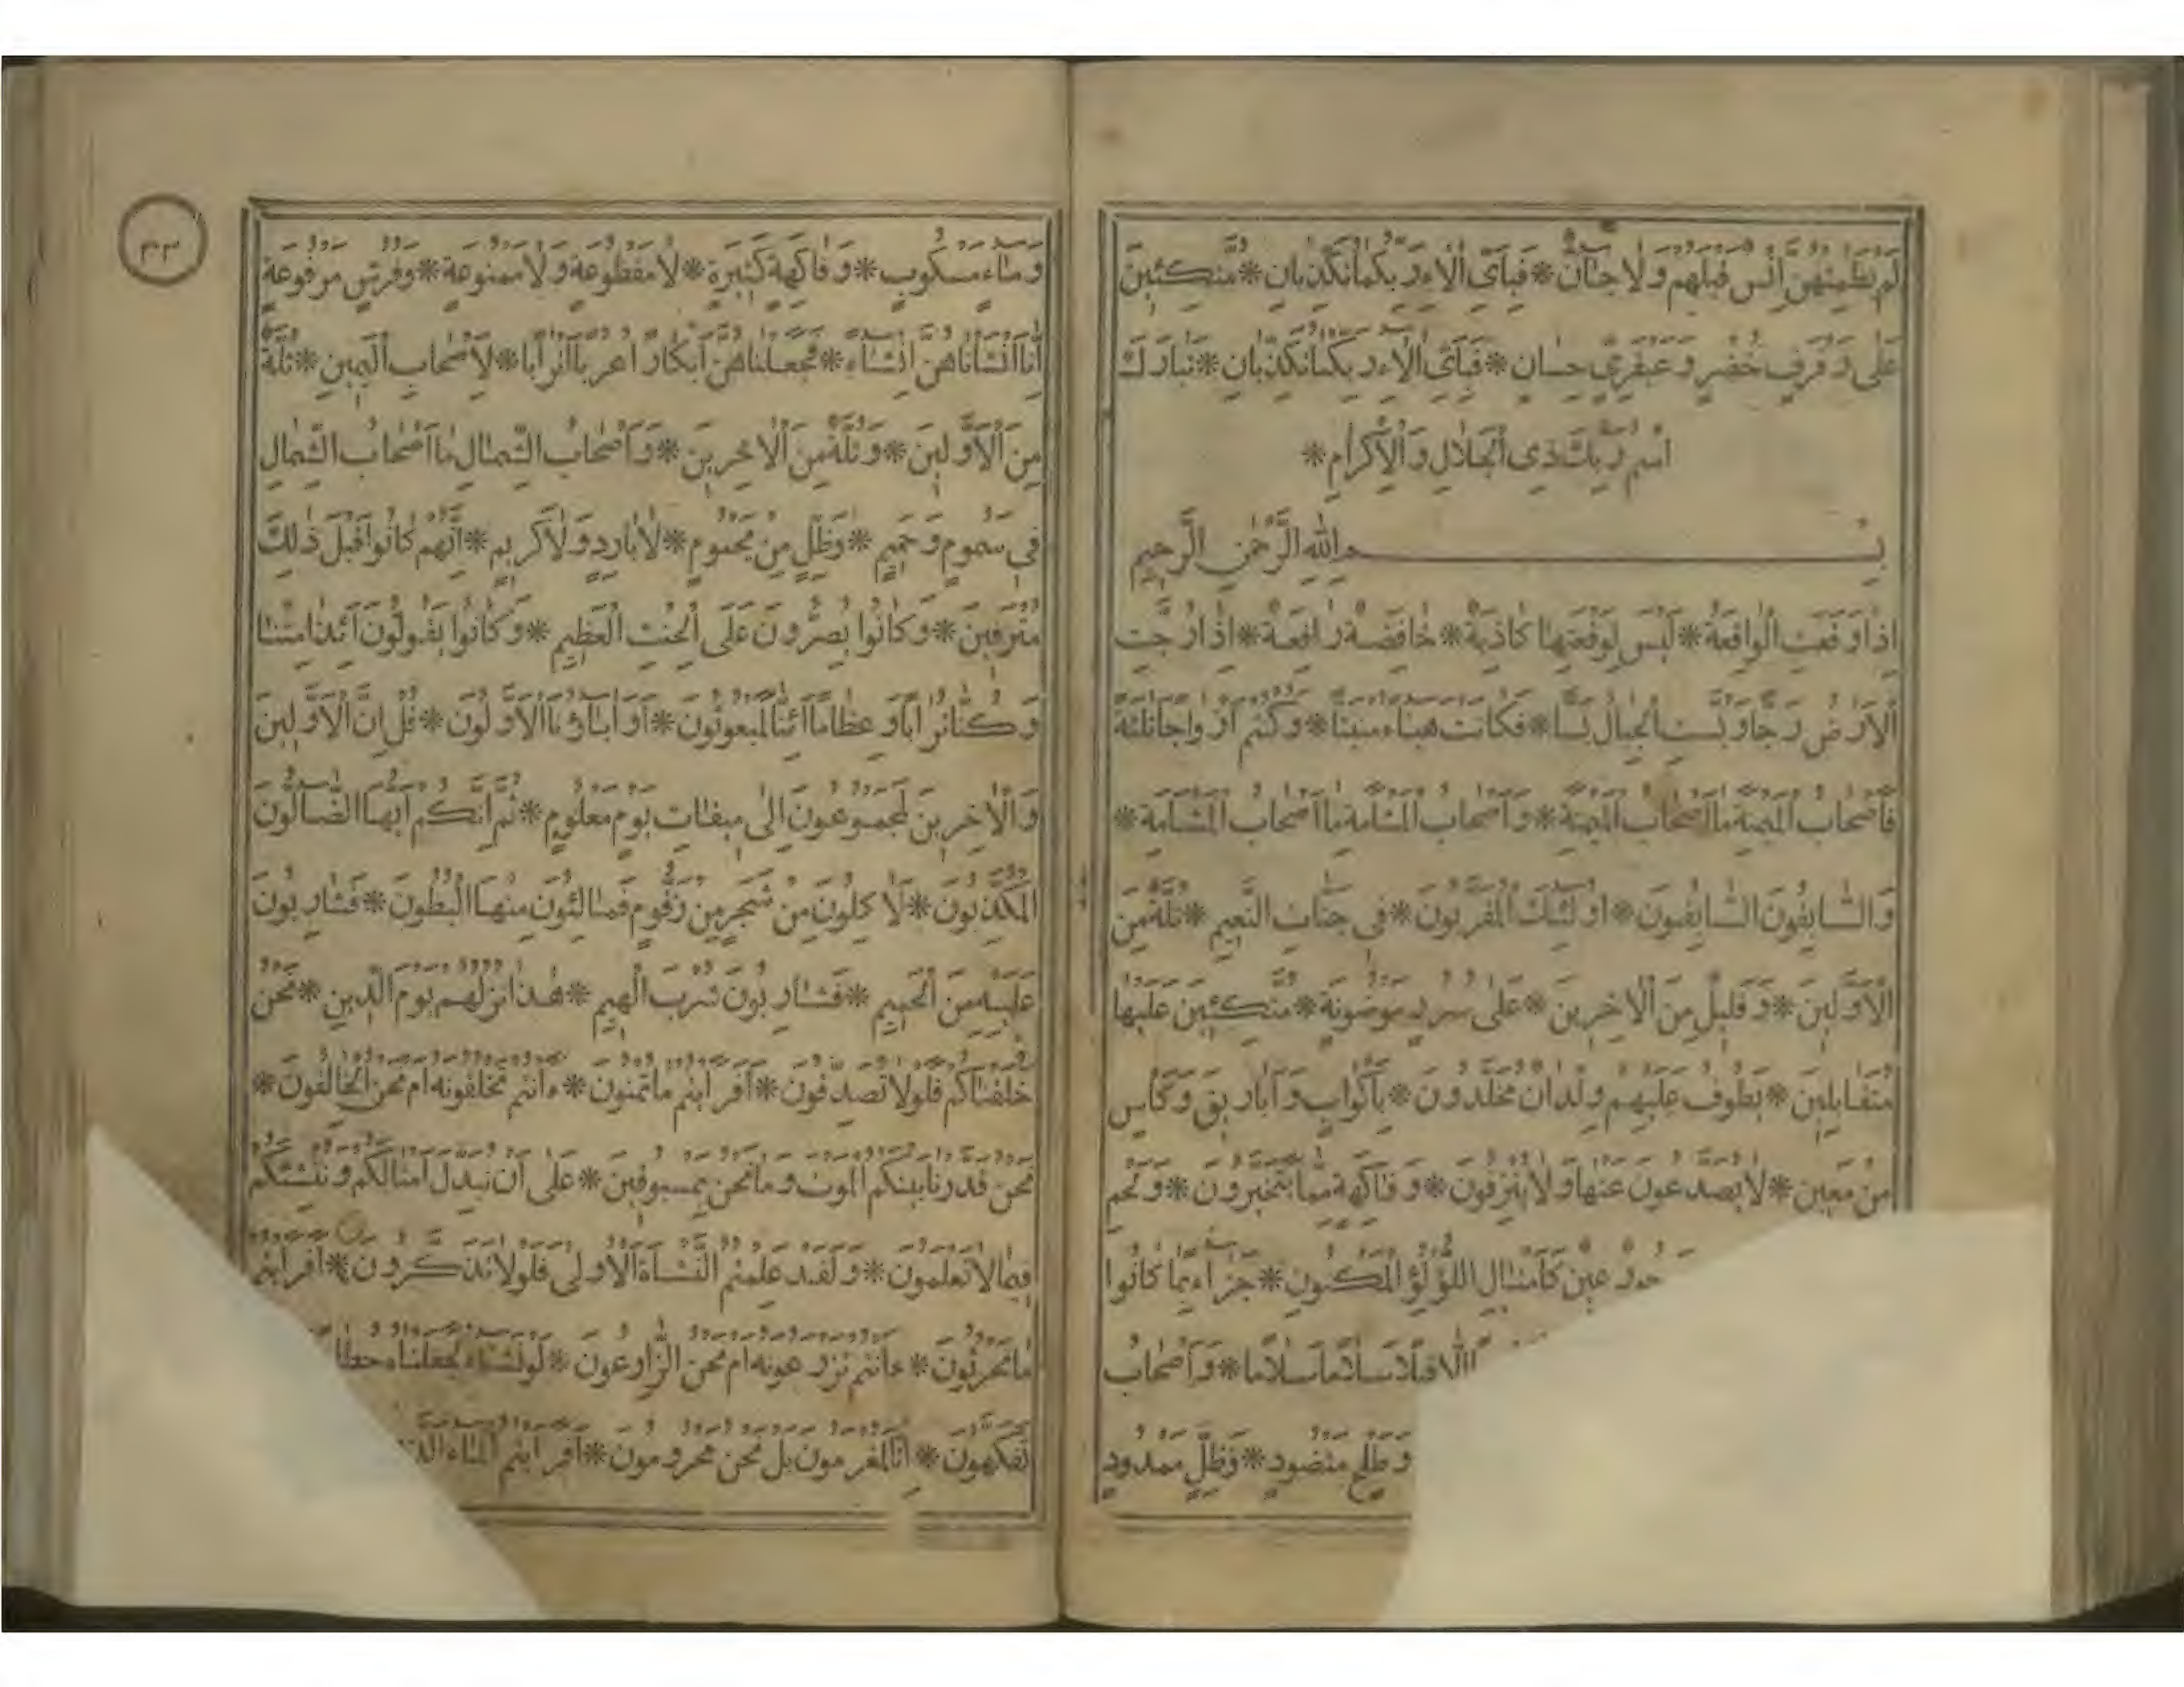 لَمْ يَطْمِثْهُنَّ إِنْسٌ قَبْلَهُمْ وَلَا جَانٌّ * فَبِأَيِّ اٰلَاءِ رَبِّكُمَا تُكَذِّبَانِ * مُتَّكِئِينَ
عَلٰى رَفْرَفٍ خُضْرٍ وَعَبْقَرِيٍّ حِسَانٍ * فَبِأَيِّ اٰلَاءِ رَبِّكُمَا تُكَذِّبَانِ * تَبَارَكَ
اسْمُ رَبِّكَ ذِي الْجَلَالِ وَالْإِكْرَامِ *
بِسْمِ اللهِ الرَّحْمٰنِ الرَّحِيمِ
إِذَا وَقَعَتِ الْوَاقِعَةُ * لَيْسَ لِوَقْعَتِهَا كَاذِبَةٌ * خَافِضَةٌ رَافِعَةٌ * إِذَا رُجَّتِ
الْأَرْضُ رَجًّا وَبُسَّتِ الْجِبَالُ بَسًّا * فَكَانَتْ هَبَاءً مُنْبَثًّا * وَكُنْتُمْ أَزْوَاجًا ثَلٰثَةً
فَأَصْحَابُ الْمَيْمَنَةِ مَا أَصْحَابُ الْمَيْمَنَةِ * وَأَصْحَابُ الْمَشْأَمَةِ مَا أَصْحَابُ الْمَشْأَمَةِ *
وَالسَّابِقُونَ السَّابِقُونَ * أُولٰئِكَ الْمُقَرَّبُونَ * فِي جَنَّاتِ النَّعِيمِ * ثُلَّةٌ مِنَ
الْأَوَّلِينَ * وَقَلِيلٌ مِنَ الْاٰخِرِينَ * عَلٰى سُرُرٍ مَوْضُونَةٍ * مُتَّكِئِينَ عَلَيْهَا
مُتَقَابِلِينَ * يَطُوفُ عَلَيْهِمْ وِلْدَانٌ مُخَلَّدُونَ * بِأَكْوَابٍ وَأَبَارِيقَ وَكَأْسٍ
مِنْ مَعِينٍ * لَا يُصَدَّعُونَ عَنْهَا وَلَا يُنْزِفُونَ * وَفَاكِهَةٍ مِمَّا يَتَخَيَّرُونَ * وَلَحْمِ
حُورٌ عِينٌ كَأَمْثَالِ اللُّؤْلُؤِ الْمَكْنُونِ * جَزَاءً بِمَا كَانُوا
إِلَّا قِيلًا سَلَامًا سَلَامًا * وَأَصْحَابُ
وَطَلْحٍ مَنْضُودٍ * وَظِلٍّ مَمْدُودٍ
٣٣
وَمَاءٍ مَسْكُوبٍ * وَفَاكِهَةٍ كَثِيرَةٍ * لَا مَقْطُوعَةٍ وَلَا مَمْنُوعَةٍ * وَفُرُشٍ مَرْفُوعَةٍ
إِنَّا أَنْشَأْنَاهُنَّ إِنْشَاءً * فَجَعَلْنَاهُنَّ أَبْكَارًا عُرُبًا أَتْرَابًا * لِأَصْحَابِ الْيَمِينِ * ثُلَّةٌ
مِنَ الْأَوَّلِينَ * وَثُلَّةٌ مِنَ الْاٰخِرِينَ * وَأَصْحَابُ الشِّمَالِ مَا أَصْحَابُ الشِّمَالِ
فِي سَمُومٍ وَحَمِيمٍ * وَظِلٍّ مِنْ يَحْمُومٍ * لَا بَارِدٍ وَلَا كَرِيمٍ * إِنَّهُمْ كَانُوا قَبْلَ ذٰلِكَ
مُتْرَفِينَ * وَكَانُوا يُصِرُّونَ عَلَى الْحِنْثِ الْعَظِيمِ * وَكَانُوا يَقُولُونَ أَئِذَا مِتْنَا
وَكُنَّا تُرَابًا وَعِظَامًا أَئِنَّا لَمَبْعُوثُونَ * أَوَاٰبَاؤُنَا الْأَوَّلُونَ * قُلْ إِنَّ الْأَوَّلِينَ
وَالْاٰخِرِينَ لَمَجْمُوعُونَ إِلٰى مِيقَاتِ يَوْمٍ مَعْلُومٍ * ثُمَّ إِنَّكُمْ أَيُّهَا الضَّالُّونَ
الْمُكَذِّبُونَ * لَاٰكِلُونَ مِنْ شَجَرٍ مِنْ زَقُّومٍ فَمَالِئُونَ مِنْهَا الْبُطُونَ * فَشَارِبُونَ
عَلَيْهِ مِنَ الْحَمِيمِ * فَشَارِبُونَ شُرْبَ الْهِيمِ * هٰذَا نُزُلُهُمْ يَوْمَ الدِّينِ * نَحْنُ
خَلَقْنَاكُمْ فَلَوْلَا تُصَدِّقُونَ * أَفَرَأَيْتُمْ مَا تُمْنُونَ * ءَأَنْتُمْ تَخْلُقُونَهُ أَمْ نَحْنُ الْخَالِقُونَ *
نَحْنُ قَدَّرْنَا بَيْنَكُمُ الْمَوْتَ وَمَا نَحْنُ بِمَسْبُوقِينَ * عَلٰى أَنْ نُبَدِّلَ أَمْثَالَكُمْ وَنُنْشِئَكُمْ
فِيمَا لَا تَعْلَمُونَ * وَلَقَدْ عَلِمْتُمُ النَّشْأَةَ الْأُولٰى فَلَوْلَا تَذَكَّرُونَ * أَفَرَأَيْتُمْ
مَا تَحْرُثُونَ * ءَأَنْتُمْ تَزْرَعُونَهُ أَمْ نَحْنُ الزَّارِعُونَ * لَوْ نَشَاءُ لَجَعَلْنَاهُ حُطَا
تَفَكَّهُونَ * إِنَّا لَمُغْرَمُونَ بَلْ نَحْنُ مَحْرُومُونَ * أَفَرَأَيْتُمُ الْمَاءَ